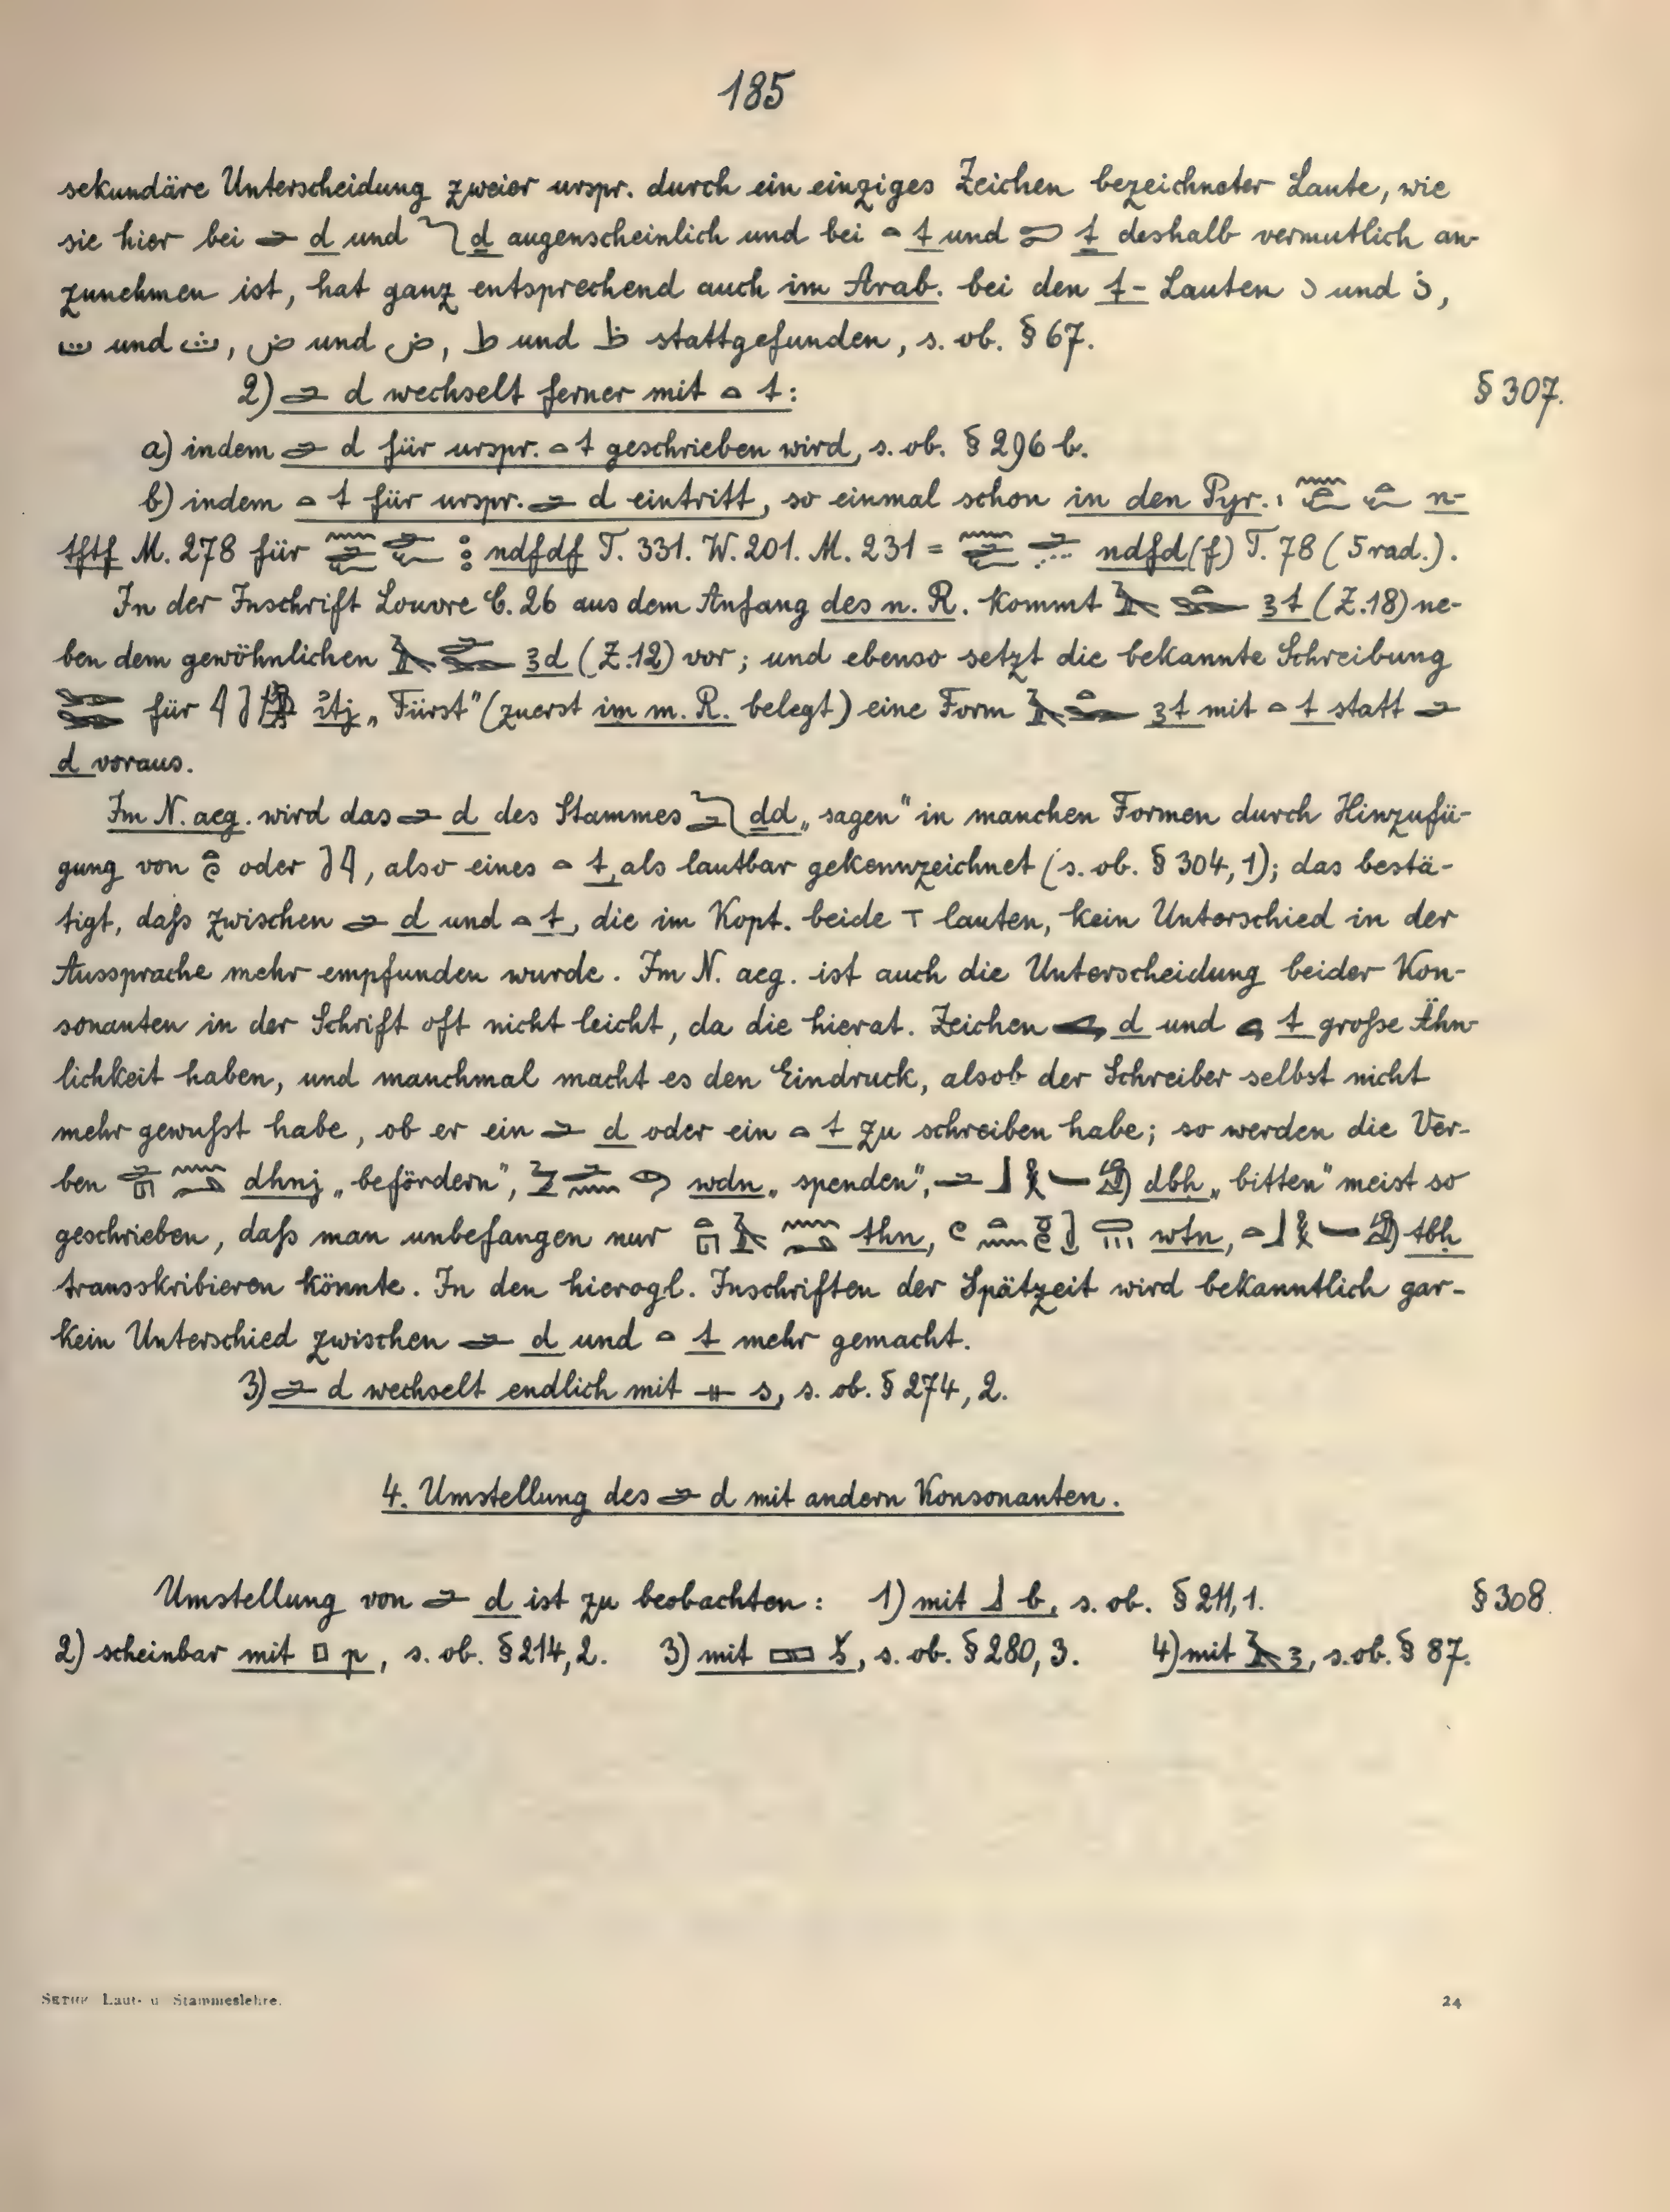 185
sekundäre Unterscheidung zweier urspr. durch ein einziges Zeichen bezeichneter Laute, wie
sie hier bei 𓂧 d und 𓆓 ḏ augenscheinlich und bei 𓏏 t und 𓍿 ṯ deshalb vermutlich an-
zunehmen ist, hat ganz entsprechend auch im Arab. bei den t-Lauten د und ذ,
und ث, ض und ص, ط und ظ stattgefunden, s. ob. § 67.
2) 𓂧 d wechselt ferner mit 𓏏 t: § 307.
a) indem 𓂧 d für urspr. 𓏏 t geschrieben wird, s. ob. § 296 b.
b) indem 𓏏 t für urspr. 𓂧 d eintritt, so einmal schon in den Pyr.: n-
tftf M. 278 für ndfdf T. 331. W. 201. M. 231 = ndfd(f) T. 78 (5rad.).
In der Inschrift Louvre C. 26 aus dem Anfang des n. R. kommt 3t (Z.18) ne-
ben dem gewöhnlichen 3d (Z.12) vor; und ebenso setzt die bekannte Schreibung
𓆋𓆋 für itj „Fürst“ (zuerst im m. R. belegt) eine Form 3t mit 𓏏 t statt 𓂧
d voraus.
Im N. aeg. wird das 𓂧 d des Stammes ḏd „sagen“ in manchen Formen durch Hinzufü-
gung von oder , also eines 𓏏 t, als lautbar gekennzeichnet (s. ob. § 304, 1); das bestä-
tigt, daſs zwischen 𓂧 d und 𓏏 t, die im Kopt. beide ⲧ lauten, kein Unterschied in der
Aussprache mehr empfunden wurde. Im N. aeg. ist auch die Unterscheidung beider Kon-
sonanten in der Schrift oft nicht leicht, da die hierat. Zeichen d und t groſse Ähn-
lichkeit haben, und manchmal macht es den Eindruck, alsob der Schreiber selbst nicht
mehr gewuſst habe, ob er ein 𓂧 d oder ein 𓏏 t zu schreiben habe; so werden die Ver-
ben dhnj „befördern“, wdn „spenden“, dbḥ „bitten“ meist so
geschrieben, daſs man unbefangen nur thn, wtn, tbḥ
transskribieren könnte. In den hierogl. Inschriften der Spätzeit wird bekanntlich gar-
kein Unterschied zwischen 𓂧 d und 𓏏 t mehr gemacht.
3) 𓂧 d wechselt endlich mit 𓊃 s, s. ob. § 274, 2.
4. Umstellung des 𓂧 d mit andern Konsonanten.
Umstellung von 𓂧 d ist zu beobachten: 1) mit 𓃀 b, s. ob. § 211,1. § 308.
2) scheinbar mit 𓊪 p, s. ob. § 214, 2. 3) mit 𓈙 š, s. ob. § 280, 3. 4) mit 𓄿 3, s. ob. § 87.
SETHE Laut- u Stammeslehre. 24